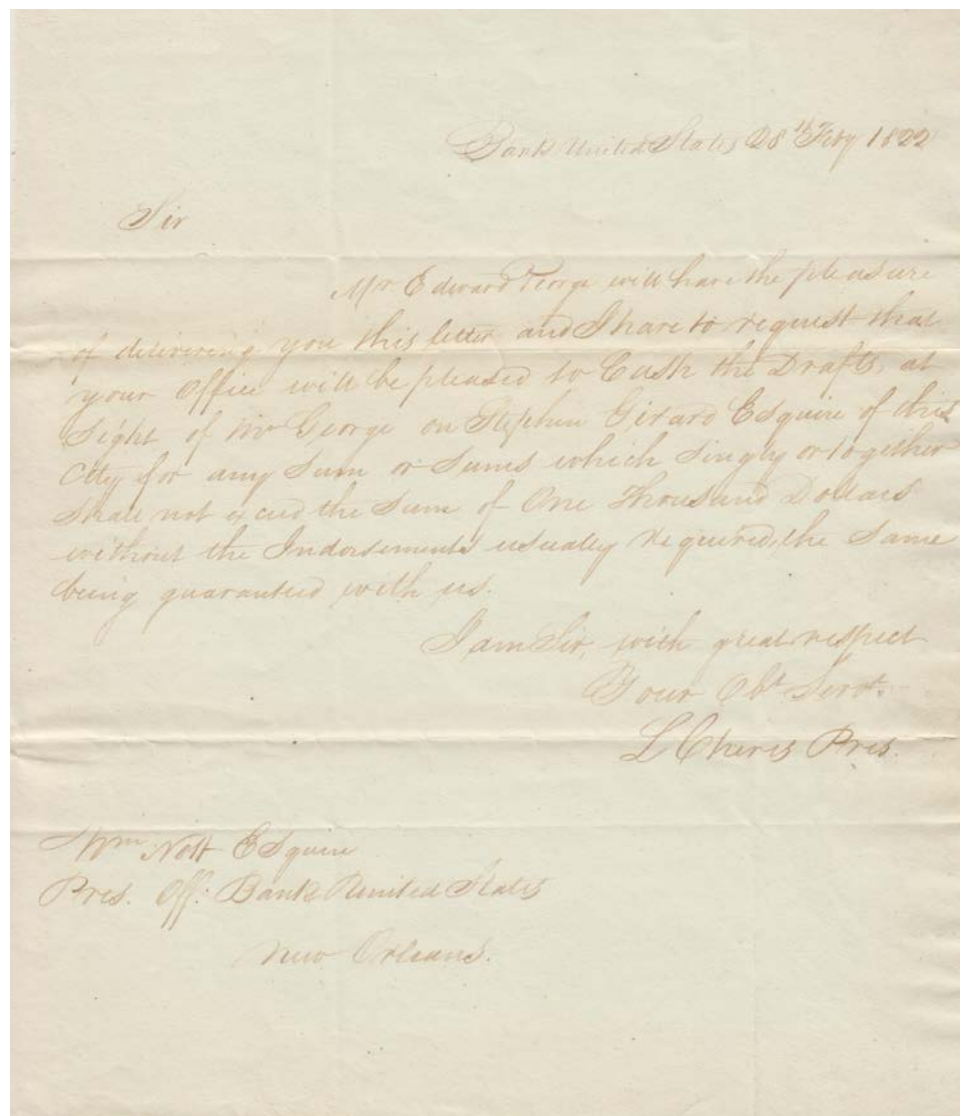 Bank United States 28th Feby 1822
Sir
Mr. Edward George will have the pleasure
of delivering you this letter and I have to request that
your Office will be pleased to Cash the Drafts, at
Sight of Mr George on Stephen Girard Esquire of this
City for any Sum or Sums which Singly or together
Shall not exceed the Sum of One Thousand Dollars
without the Indorsements usually required, the Same
being guaranteed with us.
I am Sir, with great respect
Your Obt. Servt.
L Cheves Pres.
Wm Nott Esquire
Pres. Off: Bank United States
New Orleans.